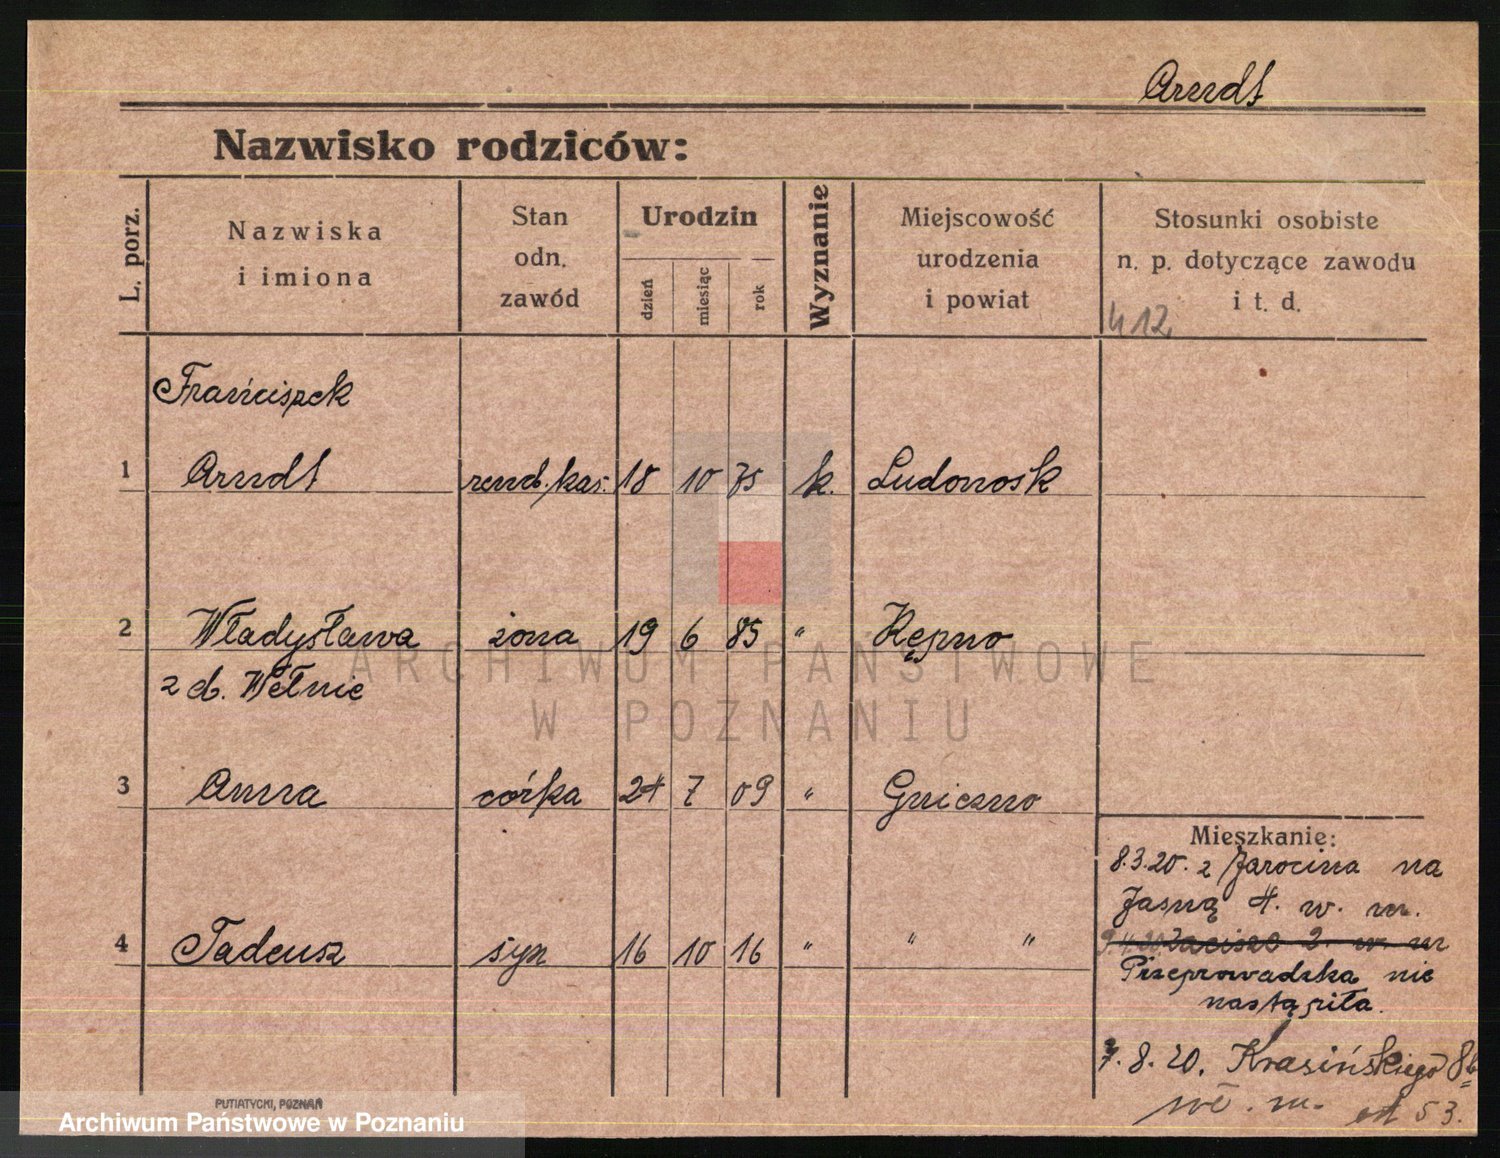 Arndt
Nazwisko rodziców:
L. porz.
Nazwiska
i imiona
Stan
odn.
zawód
Urodzin
dzień
miesiąc
rok
Wyznanie
Miejscowość
urodzenia
i powiat
Stosunki osobiste
n. p. dotyczące zawodu
i t. d.
412
Franciszek
1 Arndt rend. kas. 18 10 75 k. Ludonosk
2 Władysława żona 19 6 85 " Kępno
z d. Wełnic
3 Anna córka 24 7 09 " Gniezno
Mieszkanie:
8.3.20. z Jarocina na
Jasną 4. w. m.
4 Tadeusz syn 16 10 16 " " "
Zacisze 2. w. m
Przeprowadzka nie
nastąpiła.
7.8.20. Krasińskiego 8b
w. m. 53.
PUTIATYCKI, POZNAŃ
ARCHIWUM PAŃSTWOWE
W POZNANIU
Archiwum Państwowe w Poznaniu